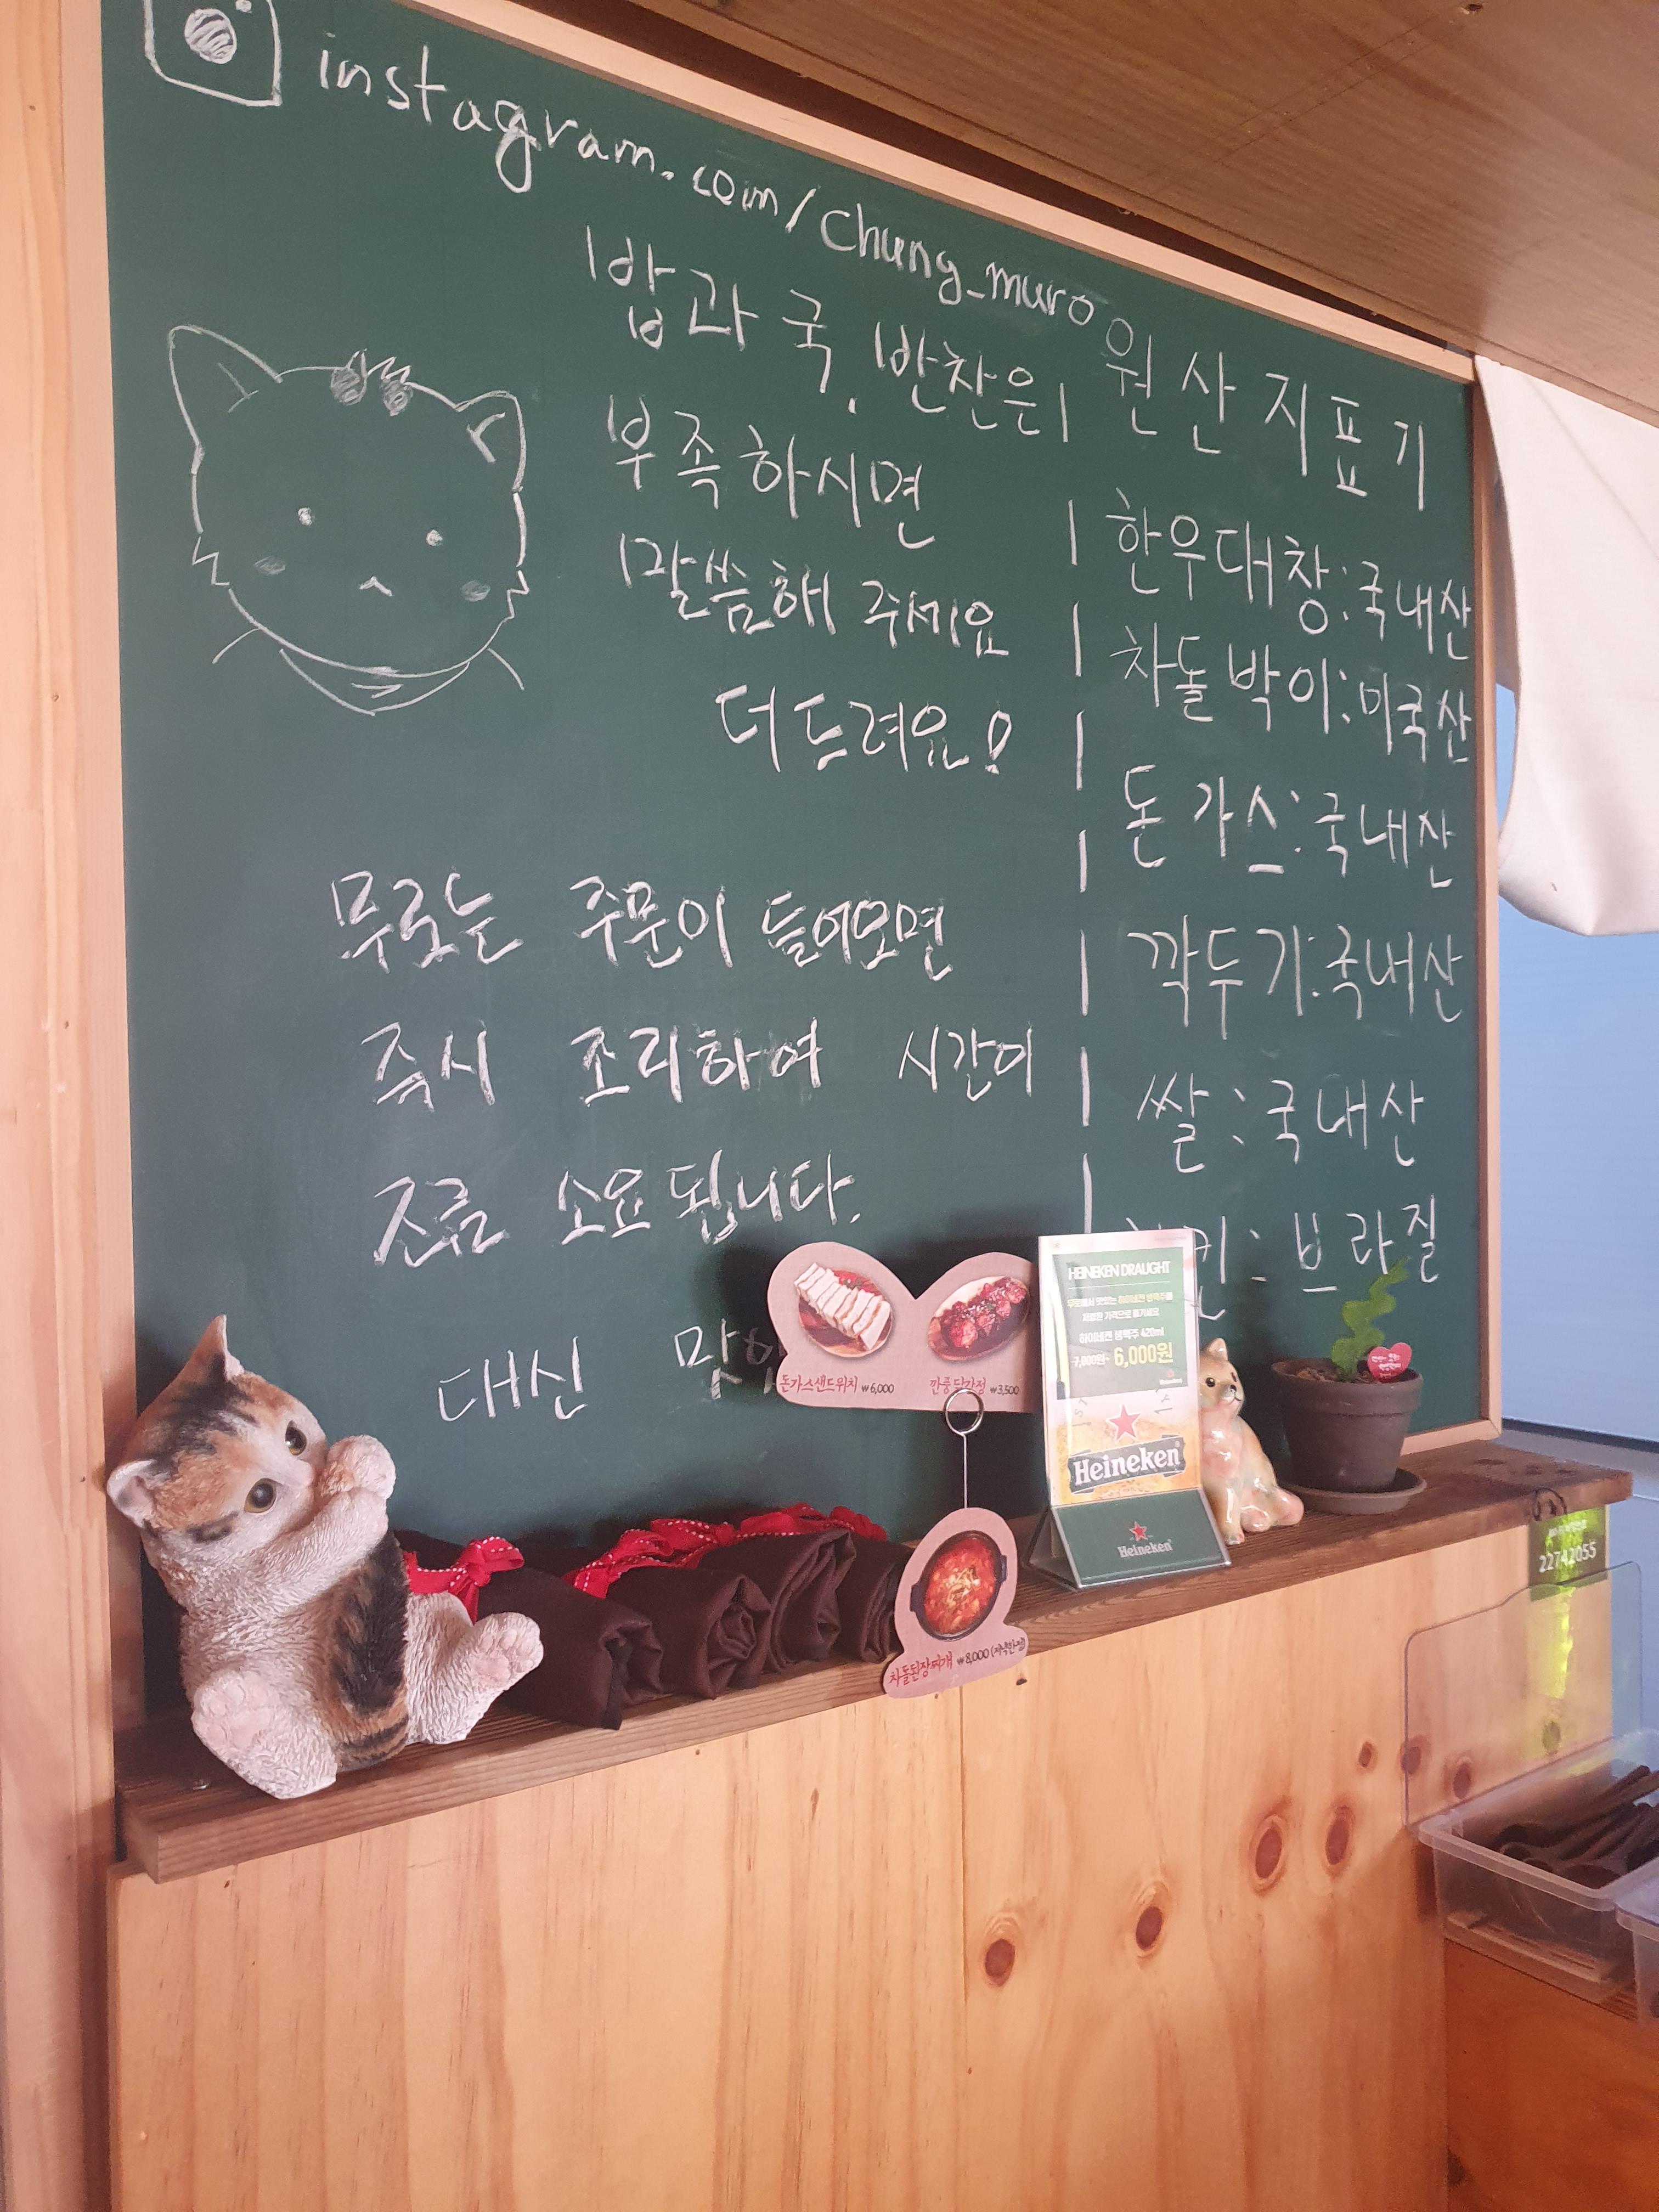 instagram.com/chung_muro
밥과 국, 반찬은
부족하시면
말씀해 주세요
더 드려요!
무로는 주문이 들어오면
즉시 조리하여 시간이
조금 소요됩니다.
대신
원산지표기
한우대창:국내산
차돌박이:미국산
돈가스:국내산
깍두기:국내산
쌀:국내산
킨:브라질
돈가스샌드위치 ₩6,000
깐풍닭강정 ₩3,500
차돌된장찌개 ₩8,000
HEINEKEN DRAUGHT
하이네켄 생맥주 420ml
7,000원 6,000원
Heineken
Heineken
22742055